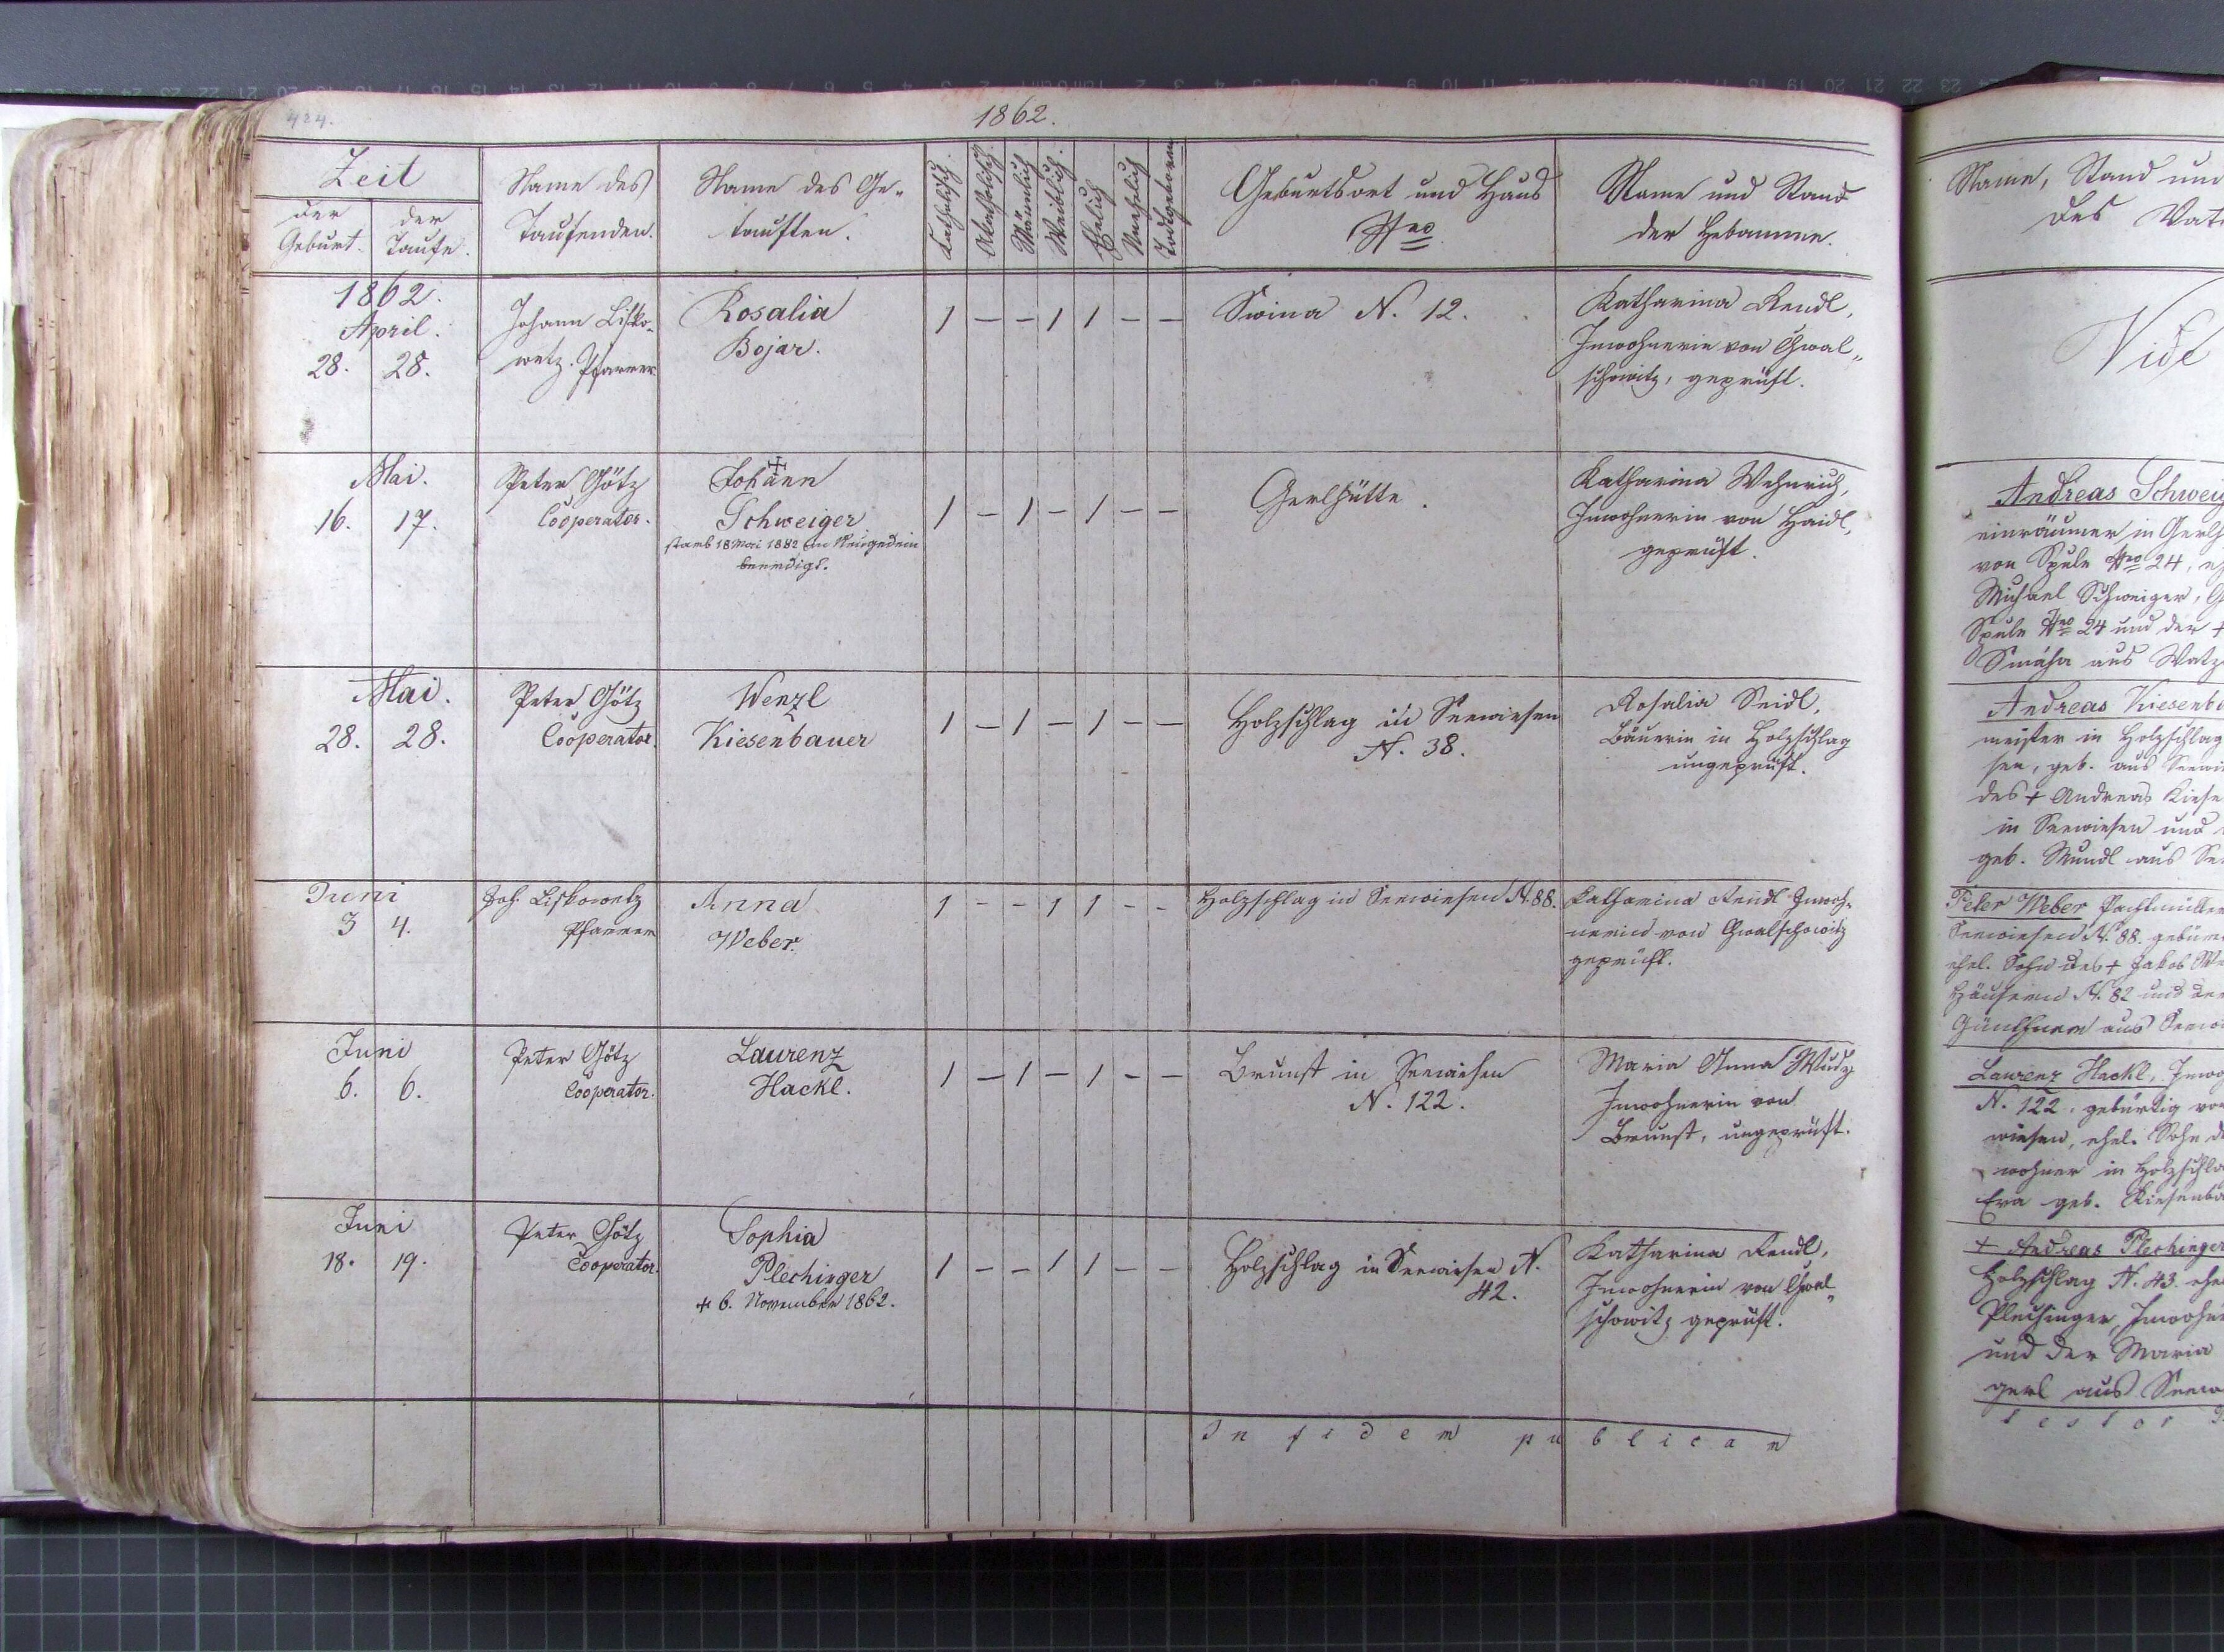 424.
1862.
Zeit
der Geburt.
der Taufe.
Name des
Taufenden.
Name des Ge-
tauften.
Katholisch.
Akatholisch.
Männlich
Weiblich.
Ehelich
Unehelich
Todtgeboren
Geburtsort und Haus
Nro
Name und Stand
der Hebamme.
1862.
April.
28. 28.
Johann Lisko-
wetz. Pfarrer
Rosalia
Bojar.
1 — — 1 1 — —
Swina N. 12.
Katharina Rendl,
Inwohnerin von Gwal„
schowitz, geprüft.
Mai.
16. 17.
Peter Götz
Cooperator.
Johann
Schweiger
starb 18 Mai 1882 in Neugedein
beerdigt.
1 — 1 — 1 — —
Gerlhütte.
Katharina
Inwohnerin von Haidl,
geprüft.
Mai.
28. 28.
Peter Götz
Cooperator.
Wenzl
Kiesenbauer
1 — 1 — 1 — —
Holzschlag in Seewiesen
N. 38.
Rosalia Seidl,
Bäuerin in Holzschlag
ungeprüft.
Juni
3 4.
Joh. Liskowetz
Pfarrer
Anna
Weber.
1 - - 1 1 - -
Holzschlag in Seewiesen N. 88.
Katharina Rendl Inwoh-
nerin von Gwalschowitz
geprüft.
Juni
6. 6.
Peter Götz
Cooperator.
Laurenz
Hackl.
1 — 1 — 1 — —
Brunst in Seewiesen
N. 122.
Maria Anna Mudz
Inwohnerin von
Brunst, ungeprüft.
Juni
18. 19.
Peter Götz
Cooperator.
Sophia
Plechinger
+ 6. November 1862.
1 — — 1 1 — —
Holzschlag in Seewiesen N.
42.
Katharina Rendl,
Inwohnerin von Gwal„
schowitz geprüft.
In fidem publicam
Name, Stand und
des Vat
Vide
Andreas Schweig
einräumer in Gerlh
von Spule Nro 24, eh
Michael Schweiger, G
Spule Nro 24 und der +
Smáha aus Watz
Andreas Kiesenba
meister in Holzschlag
sen, geb. aus Seewi
des + Andreas Kiese
in Seewiesen und
geb. Mundl aus See
Peter Weber Pachtmüller
Seewiesen N. 88. gebür
ehel. Sohn des + Jakob We
Häusern N. 82 und der
Günthner aus Seewi
Laurenz Hackl, Inwo
N. 122. gebürtig von
wiesen, ehel. Sohn d
wohner in Holzschla
Eva geb. Kiesenba
+ Andreas Plechinger
Holzschlag N. 43. ehe
Plechinger, Inwohne
und der Maria
gerl aus Seewi
testor